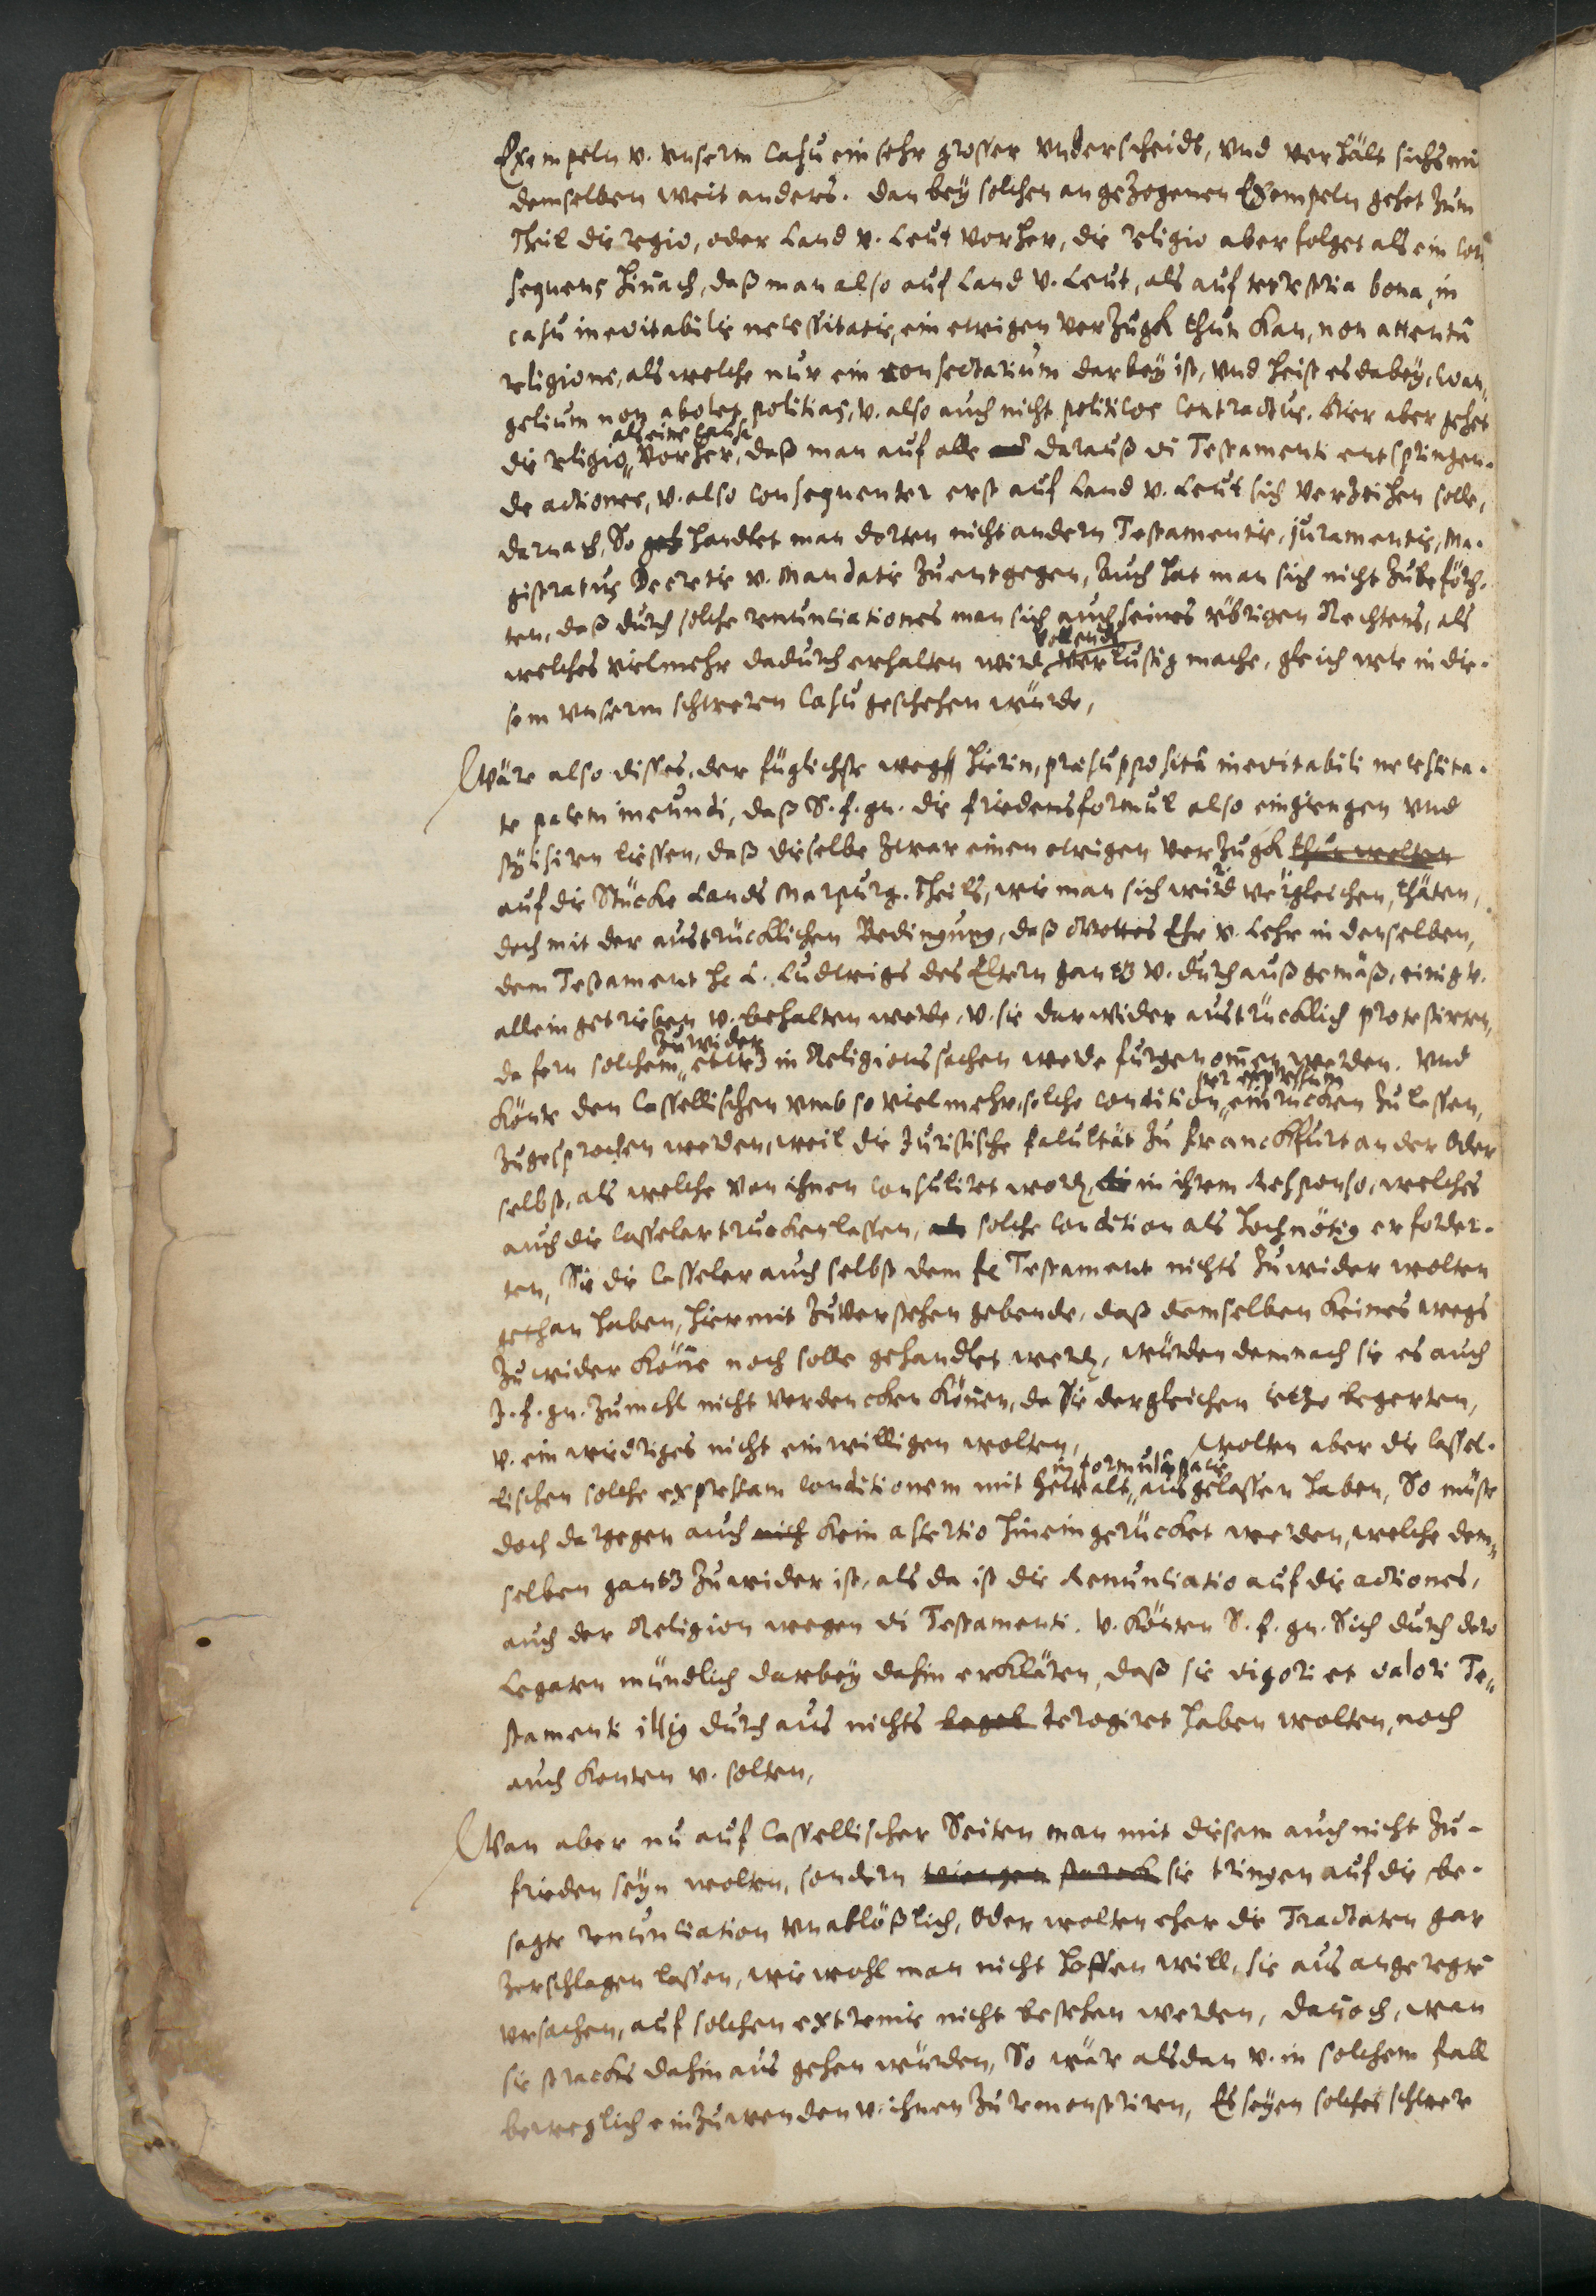 Exempeln v. vnserm Casu ein sehr grosser vnderscheidt, vnd verhält sichs mi
demselben weit anders. dan bey solchen angezogenen Exempeln gehet zum
Theil die regio, oder Land v. Leut vorher, die religio aber folget als ein con
sequens hinach, daß man also auf Land v. Leut, als auf terrestria bona, in
casu inevitabilis necessitatis, ein ewigen verzugk thun kan, non attentâ
religione, als welche nur ein consectarium darbey ist, vnd heist es dabey, Evan„
gelium non abolet politias, v. also auch nicht politicos Contractus. Hier aber gehet
als eine causa
die religio„ vorher, daß man auf alle darauß vi Testamenti entspringen.
de actiones, v. also consequenter erst auf Land v. Leut sich verzeihen solle,
darnach, So geh handlet man dorten nicht andern Testamentis, juramentis, Ma.
gistratus Decretis v. Mandatis zuentgegen, Auch hat man sich nicht zubeförch.
ten, daß durch solche renunciationes man sich auch seines übrigen Rechtens, als
vollends
welches vielmehr dadurch erhalten wird, verlustig mache, gleich wie in die.
sem vnserm schweren Casu geschehen würde,
Wäre also disses, der füglichste wegk hierin, præsuppositâ inevitabili necessita.
te pacem ineundi, daß S. f. gn. die friedensformul also eingiengen vnd
stylisiren liessen, daß dieselbe zwar einen ewigen verzugk thun wolten
auf die Stücke Lands Marpurg. Theils, wie man sich würd vergleichen, thäten,
doch mit der austrücklichen Bedingung, daß Gottes Ehr v. Lehr in denselben,
dem Testament H. L. Ludwigs des Eltern gantz v. durchauß gemäß, einig v.
allein getrieben v. behalten werde, v. sie darwider austrücklich protestirten,
zuwider
da fern solchem„ etwz in Religionssachen werde furgenommen werden. Vnd
per expressum
könte den Cassellischen vmb so vielmehr, solche condition„ einrücken zu lassen,
zugesprochen werden, weil die Juristische facultät zu Franckfurt an der Oder
selbst, als welche von ihnen consulirt word, in ihrem Responso, welches
auch die Casseler trucken lassen, als solche condition als hochnötig erforder.
ten, Sie die Casseler auch selbst dem Testament nichts zuwider wolten
gethan haben, hiermit zuverstehen gebende, daß demselben keines wegs
zuwider könne noch solle gehandlet werd, würden demnach sie es auch
J. f. gn. zumahl nicht verdencken können, da Sie dergleichen ietzo begerten,
v. ein widriges nicht einwilligen wolten, Wolten aber die Cassel.
in formula pacis
lischen solche expressam conditionem mit gewalt„ ausgelassen haben, So müste
doch dargegen auch nich kein assertio hineingerücket werden, welche dem„
selben gantz zuwider ist, als da ist die Renunciatio auf die actiones,
auch der Religion wegen vi Testamenti. v. könten S. f. gn. Sich durch dero
Legaten mündlich darbey dahin erklären, daß sie vigori et valori Te„
stamenti illig durchaus nichts begeb derogiret haben wolten, noch
auch konten v. solten,
Wan aber nu auf Cassellischer Seiten man mit diesem auch nicht zu-
frieden seyn wolten, sondern triengen starck sie tringen auf die be.
sagte renunciation vnablößlich, Oder wolten eher die Tractaten gar
zerschlagen lassen, wiewohl man nicht hoffen will, sie aus angeregtē
vrsachen, auf solchen extremis nicht bestehen werden, dannoch, wan
sie stracks dahinaus gehen würden, So wär alsdan v. in solchem fall
beweglich einzuwenden v. ihnen zu remonstriren, Es seyen solches schwer